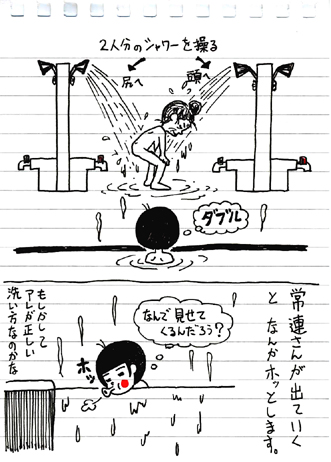 2人分のシャワーを操る
尻へ
頭へ
ダブル
常連さんが出ていく
と なんかホッとします。
なんで見せて
くるんだろう?
ホッ
もしかして
アレが正しい
洗い方なのかな